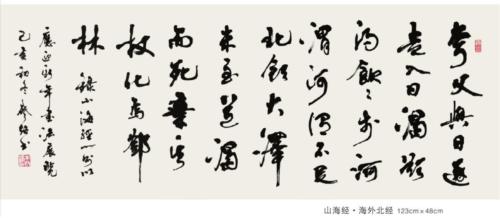 夸父與日逐
走入日渴欲
得飲〻于河
渭河渭不足
北飲大澤
未至道渴
而死棄其
杖化為鄧
林
錄山海經一則以
應迎新年書法展覽
己亥初冬
山海经·海外北经 123cm×48cm